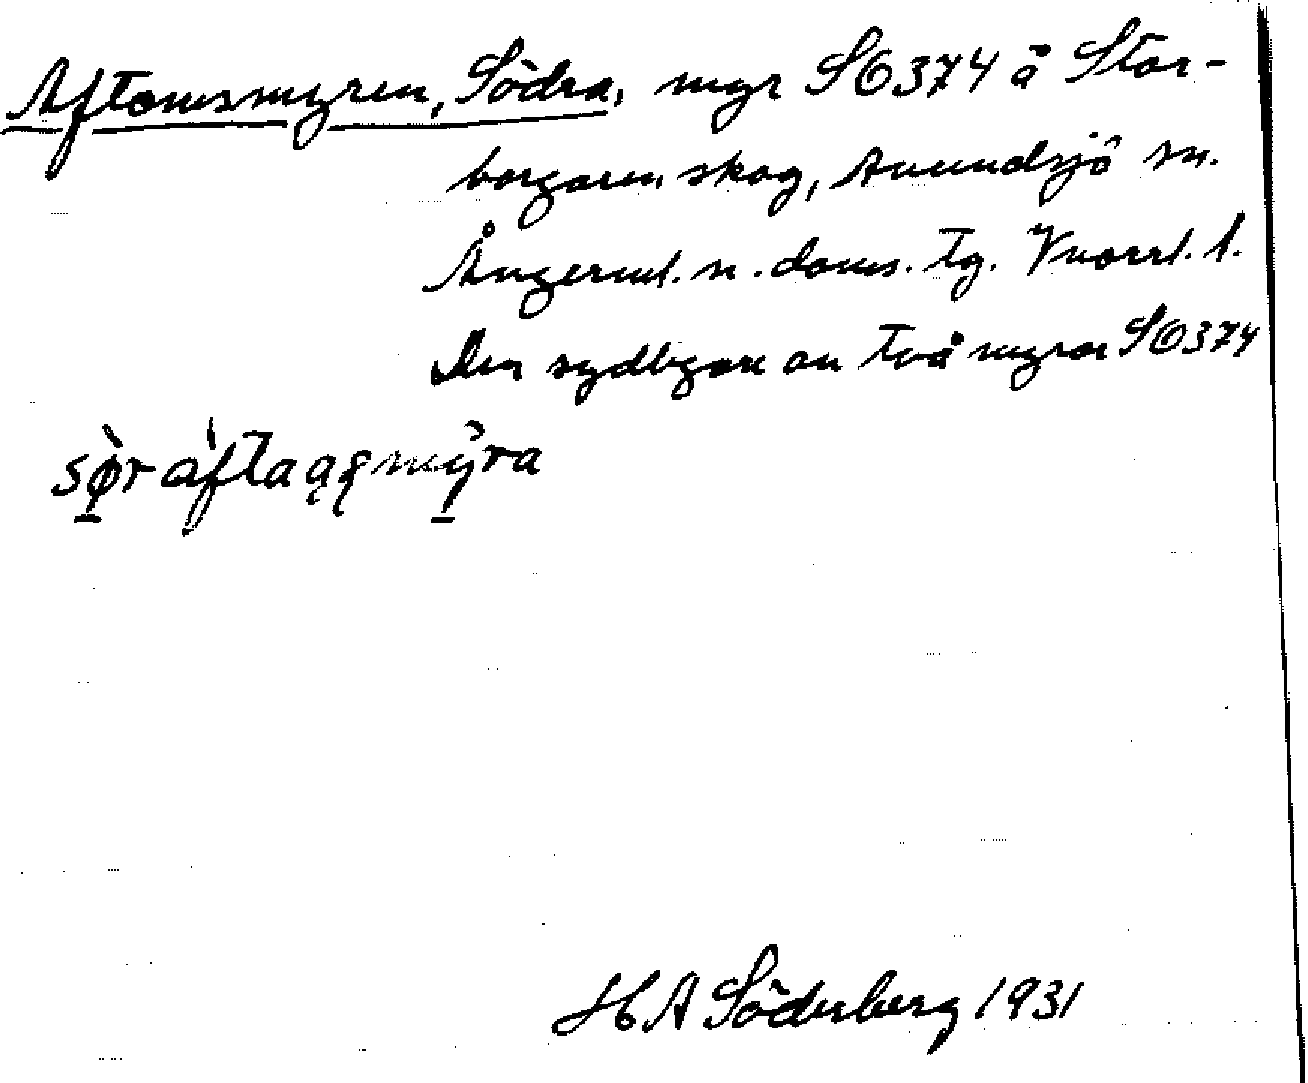 Aftonsmyren, Södra, myr SO374 å Stor-
borgaren skog, Anundsjö sn.
Ångerml. n. doms. tg. Vnorrl. l.
Den sydligare av två myror SO374
H A Söderberg 1931